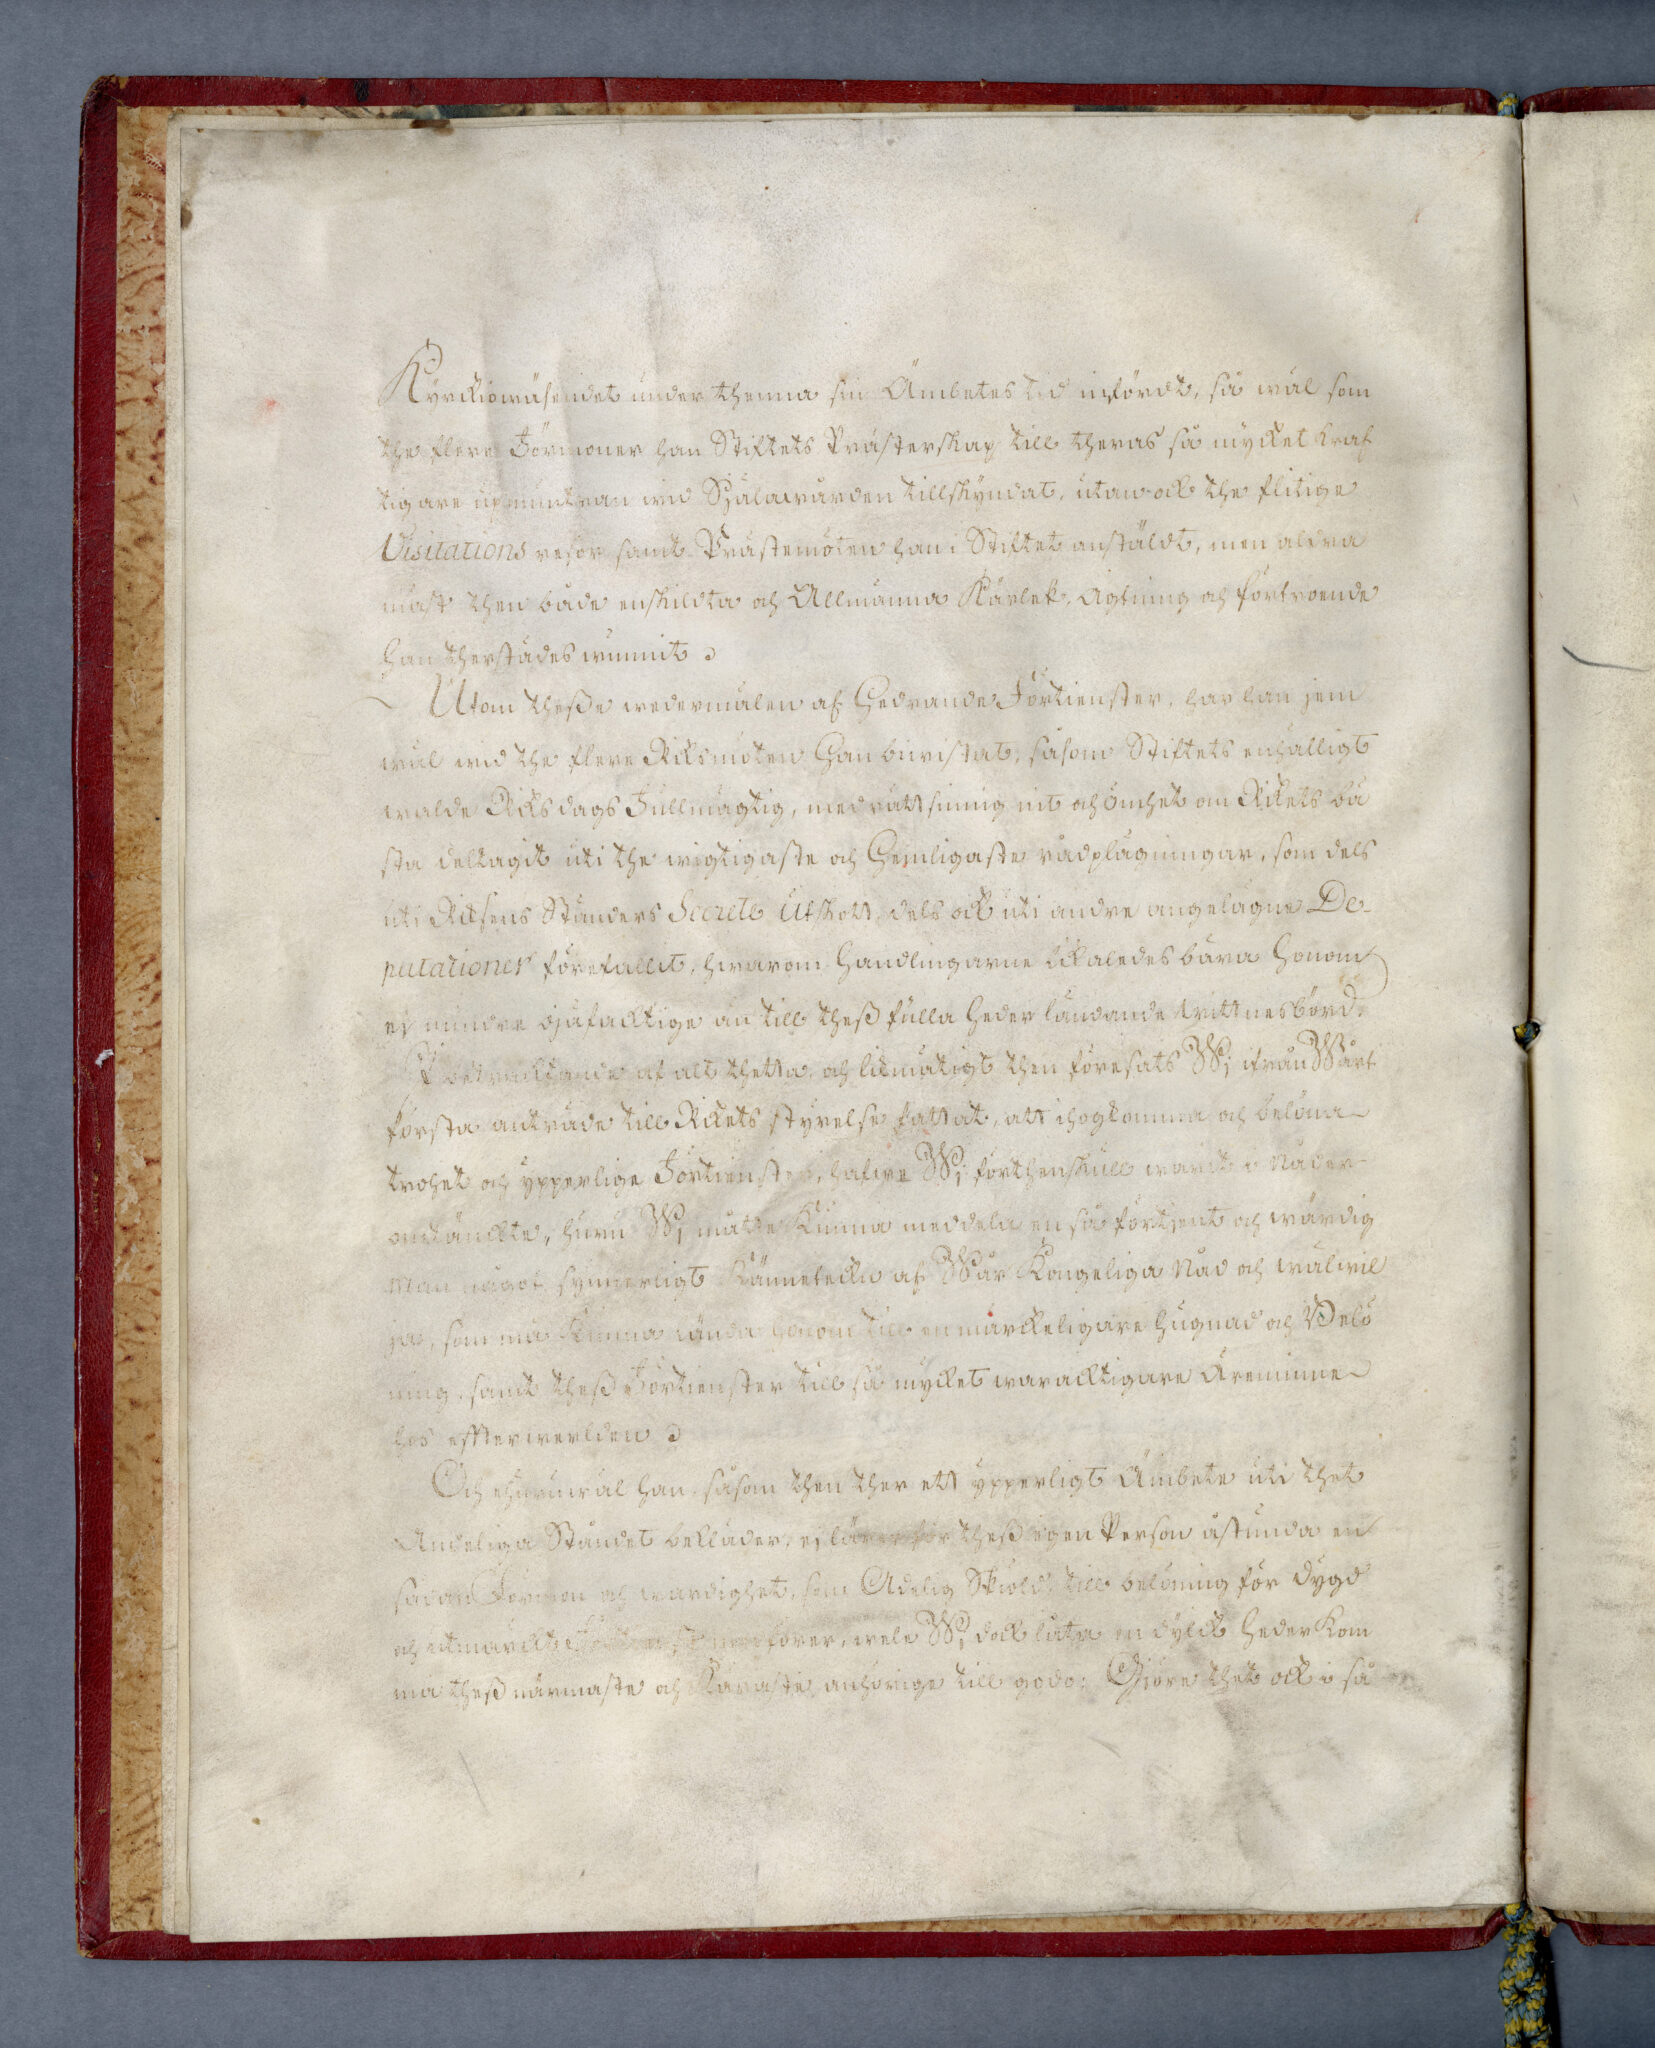 Kyrckiowäsendet under thenna sin Ämbetes tid infördt, så wäl som
the flere Förmoner han Stiftets Prästerskap till theras så mycket kraf
tigare upmuntran wid Siälawården tillskyndat, utan ock the flitige
Visitations resor samt Prästemöten han i Stiftet anstäldt, men aldra
mäst then både enskildta och Allmänna Kärlek, Agtning och förtroende
han therstädes wunnit.
Utom theße wedermälen af Hedrande Förtienster, har han jem
wäl wid the flere Riksmöten Han biwistat, såsom Stiftets enhälligt
walde Riksdags Fullmägtig, med rättsinnig nit och ömhet om Rikets bä
sta deltagit uti the wigtigaste och Hemligaste rådplägningar, som dels
uti Riksens Ständers Secrete Utskott, dels ock uti andre angelägne De-
putationer förefallit, hwarom Handlingarne likaledes bära Honom
ej mindre ojäfacktige än till theß fulla Heder ländande wittnesbörd.
I betracktande af alt thetta och likmätigt then föresats Wj ifrån Wårt
första anträde till Rikets styrelse fattat, att ihogkomma och belöna
trohet och ypperlige Förtienster, hafwe Wj förthenskull warit i Nåder
omtänckte, huru Wj måtte kunna meddela en så förtjent och wärdig
Man något synnerligt Kännetecken af Wår Kongeliga Nåd och wälwil
ja, som må kunna lända honom till en märckeligare hugnad och Belö
ning, samt theß Förtienster till så mycket waracktigare Äreminne
hos effterwerlden.
Och ehuruwäl han, såsom then ther ett ypperligt Ämbete uti thet
Andeliga Ståndet bekläder, ej lärer för theß egen Person åstunda en
sådan Förmon och wärdighet, som Adelig Skiöld, till belöning för dygd
och utmärckte medförer, wele Wj dock låta en dylik heder kom
ma theß närmaste och Käraste anhörige till godo; Giöre thet ock i så